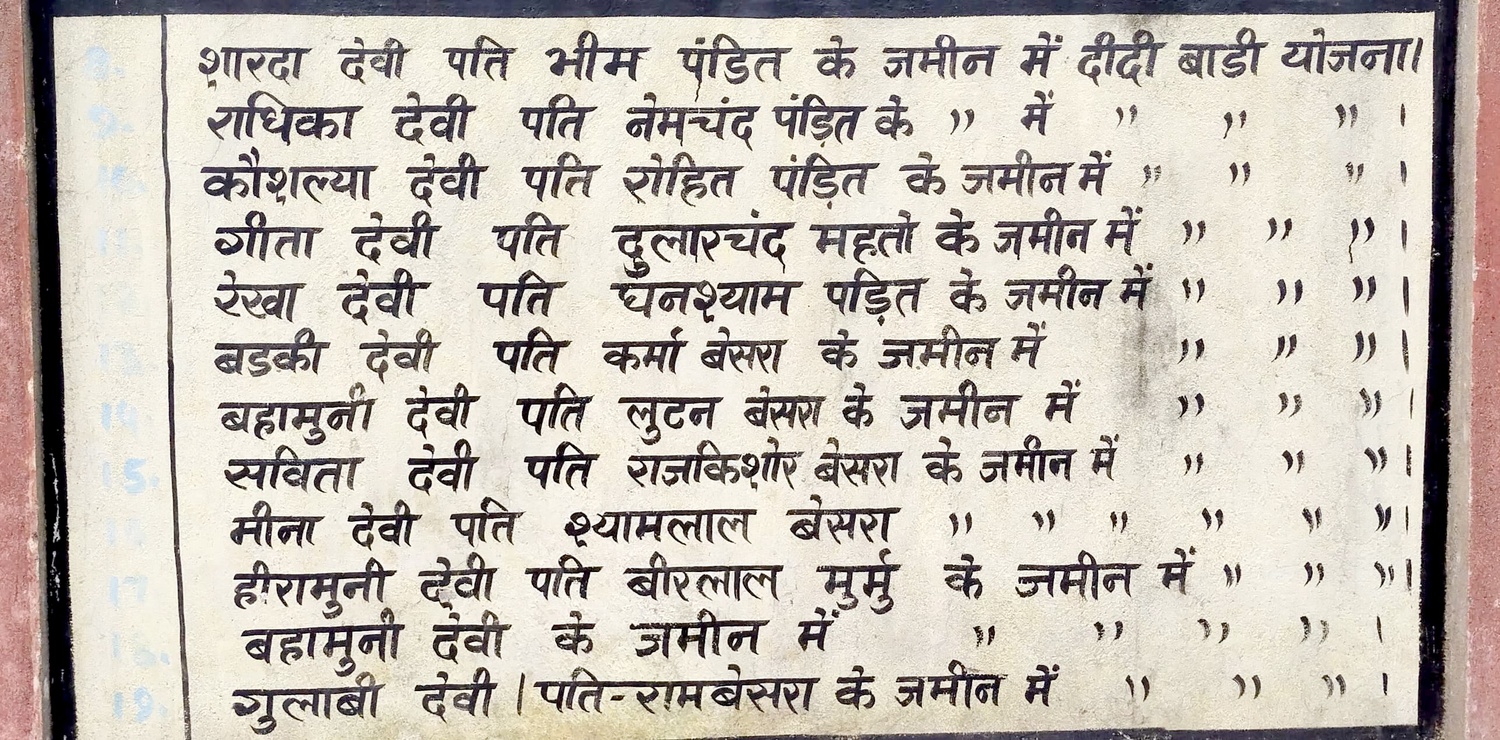 8. शारदा देवी पति भीम पंडित के जमीन में दीदी बाडी योजना।
9. राधिका देवी पति नेमचंद पंड़ित के " में " " " ।
10. कौशल्या देवी पति रोहित पंड़ित के जमीन में " " " ।
11. गीता देवी पति दुलारचंद महतो के जमीन में " " " ।
12. रेखा देवी पति घनश्याम पड़ित के जमीन में " " " ।
13. बडकी देवी पति कर्मा बेसरा के जमीन में " " " ।
14. बहामुनी देवी पति लुटन बेसरा के जमीन में " " " ।
15. सविता देवी पति राजकिशोर बेसरा के जमीन में " " " ।
16. मीना देवी पति श्यामलाल बेसरा " " " " " " ।
17. हीरामुनी देवी पति बीरलाल मुर्मु के जमीन में " " " ।
18. बहामुनी देवी के जमीन में " " " " ।
19. गुलाबी देवी । पति-रामबेसरा के जमीन में " " " ।